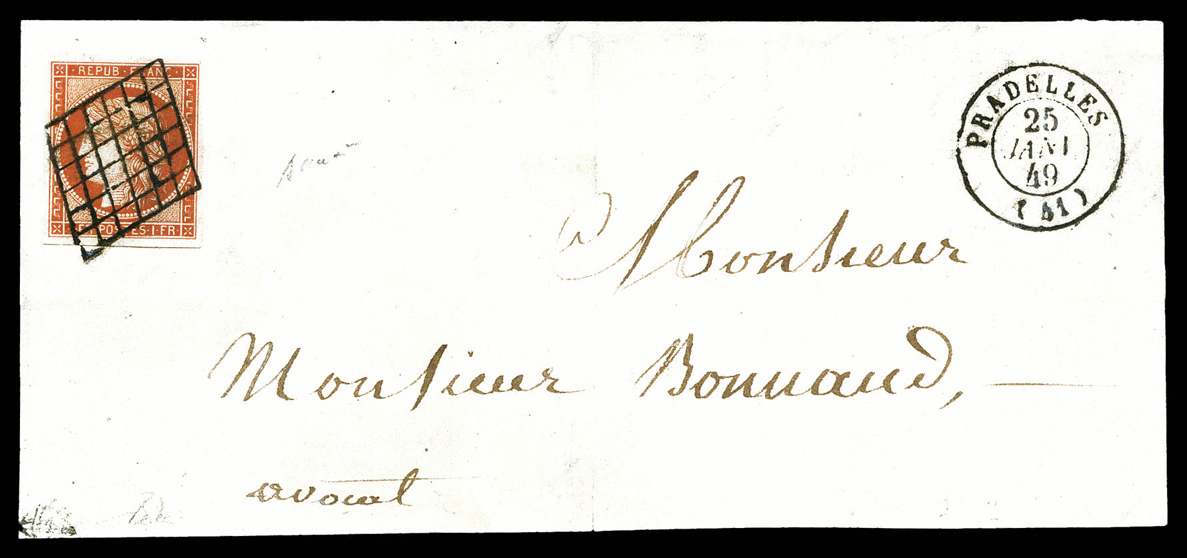 REPUB. FRANC.
POSTES · 1 · FR
PRADELLES
25
JANV
49
(41)
Monsieur
Monsieur Bonnaud,
avocat